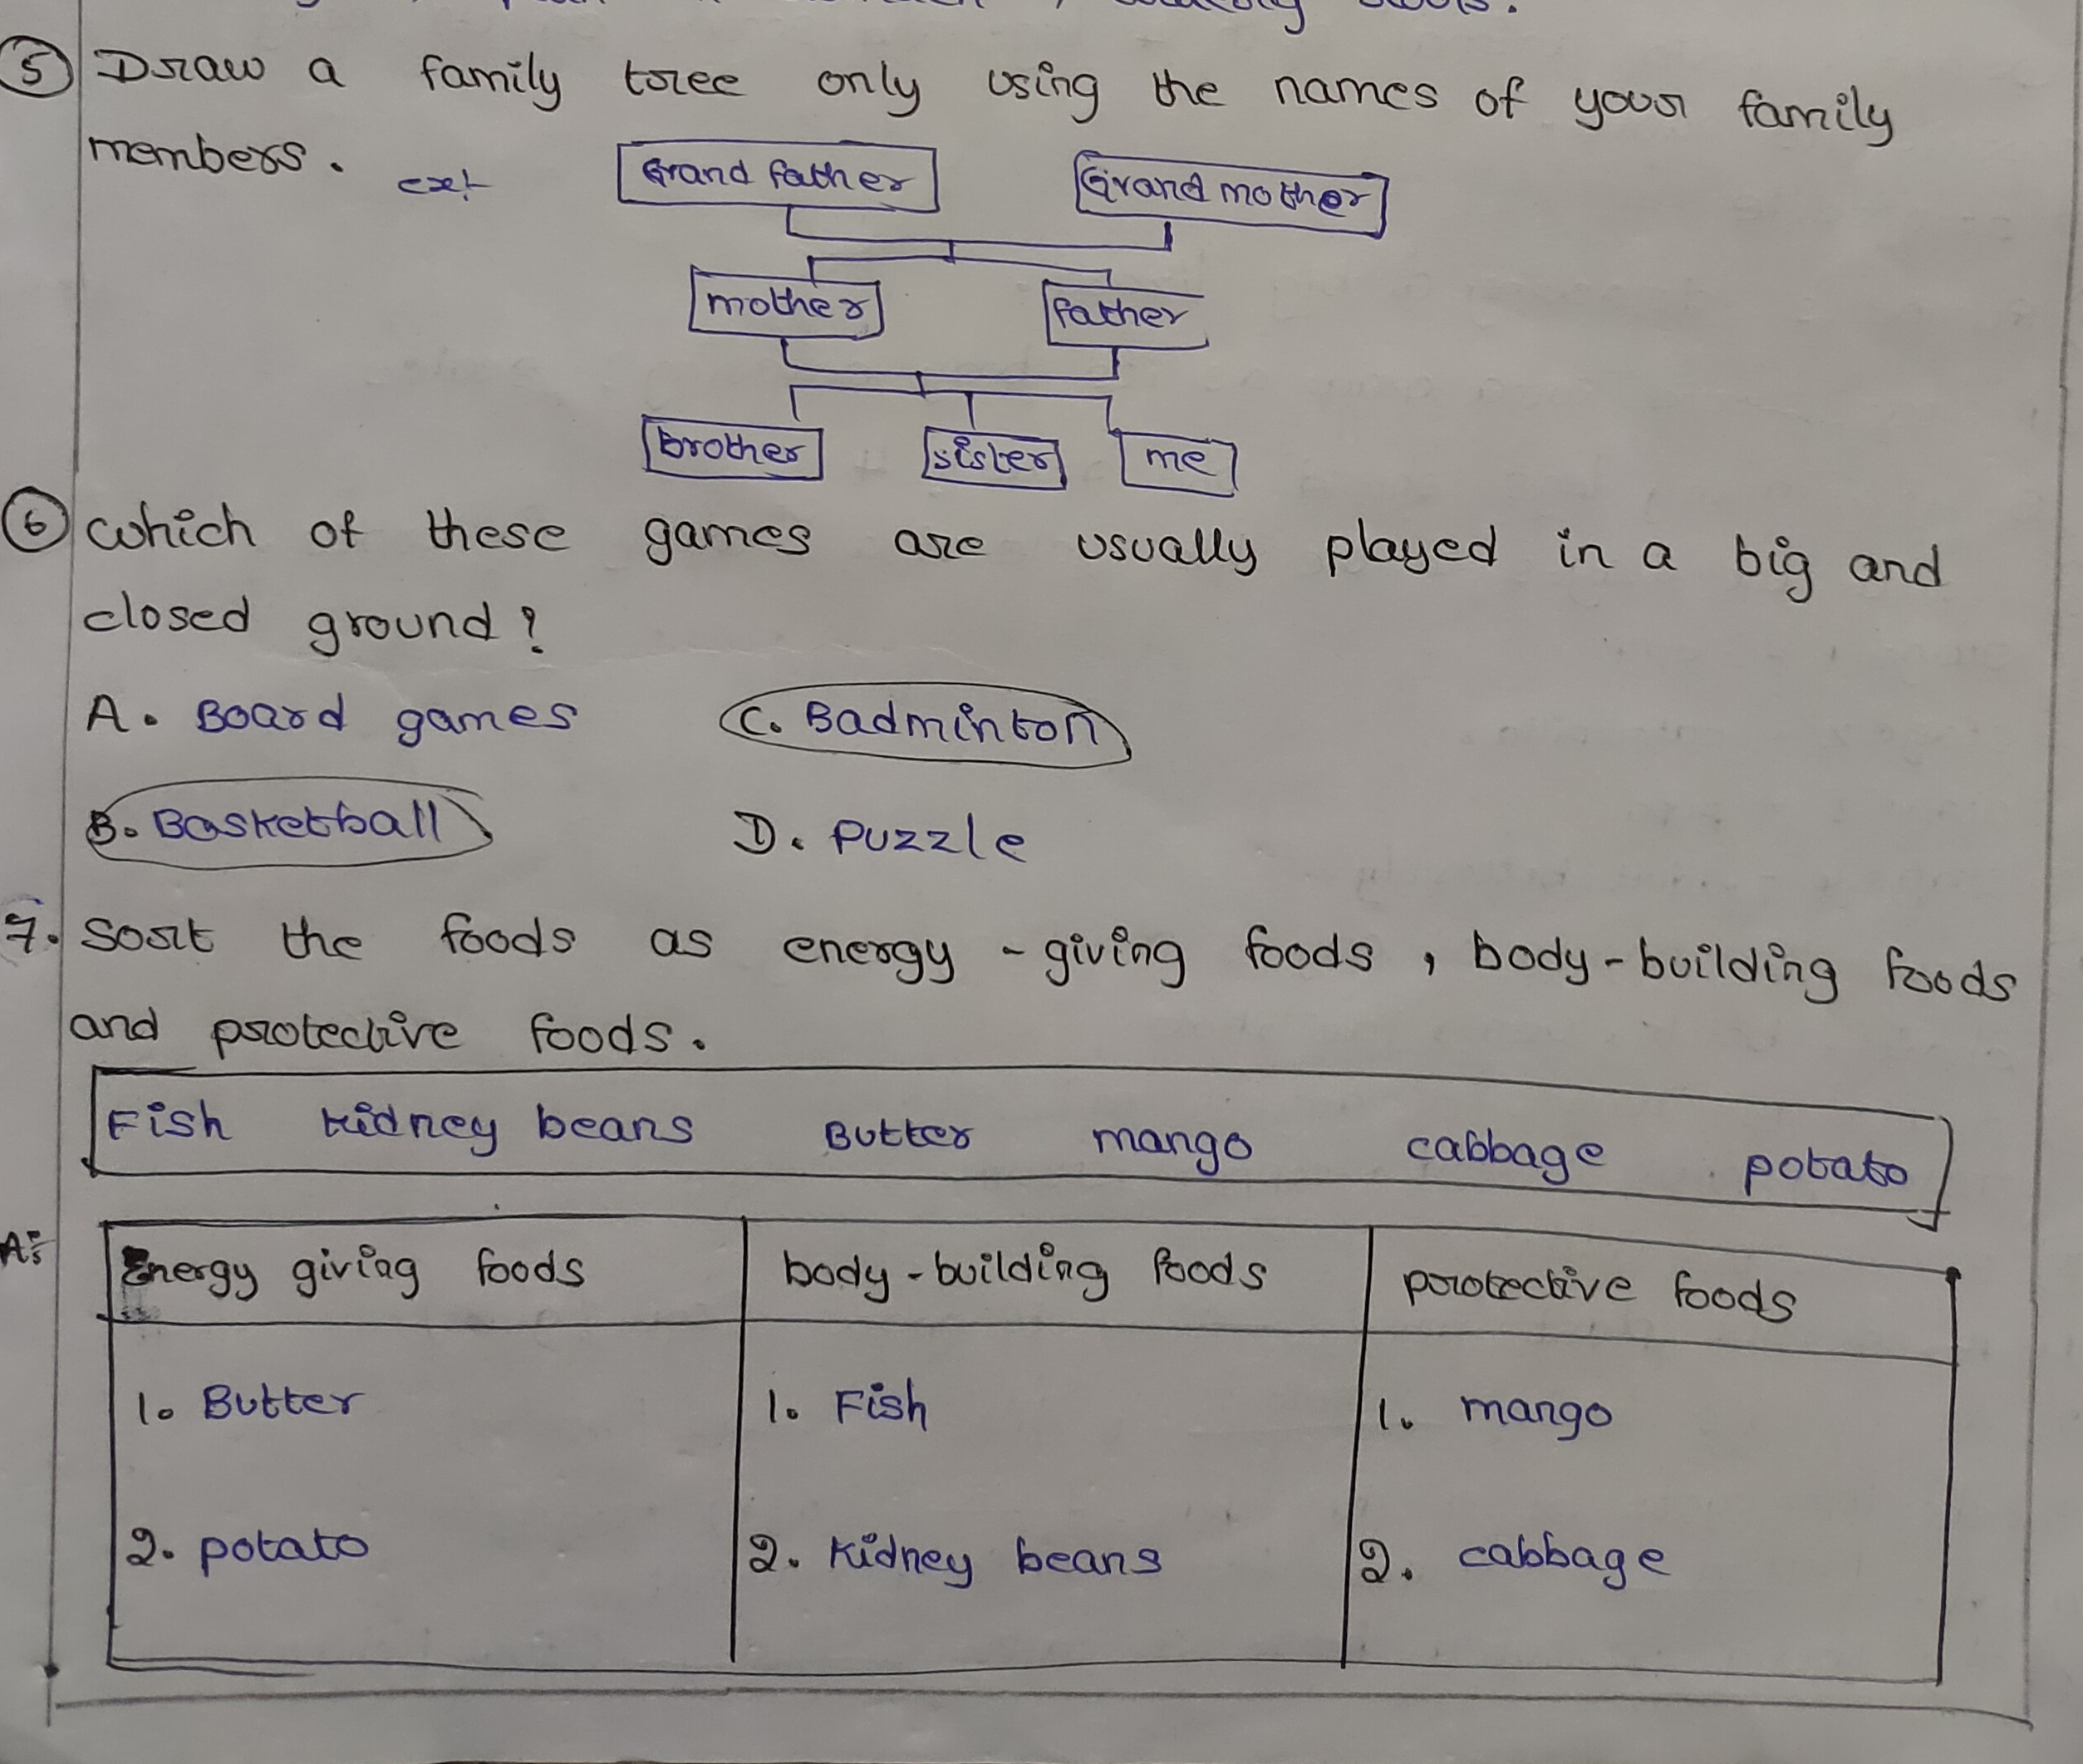 ⑤ Draw a family tree only using the names of your family
members. ex:-
Grand father Grand mother
mother father
brother sister me
⑥ which of these games are usually played in a big and
closed ground?
A. Board games C. Badminton
B. Basketball D. Puzzle
7. Sort the foods as energy-giving foods, body-building foods
and protective foods.
Fish kidney beans Butter mango cabbage potato
A:
Energy giving foods body-building foods protective foods
1. Butter 1. Fish 1. mango
2. potato 2. kidney beans 2. cabbage